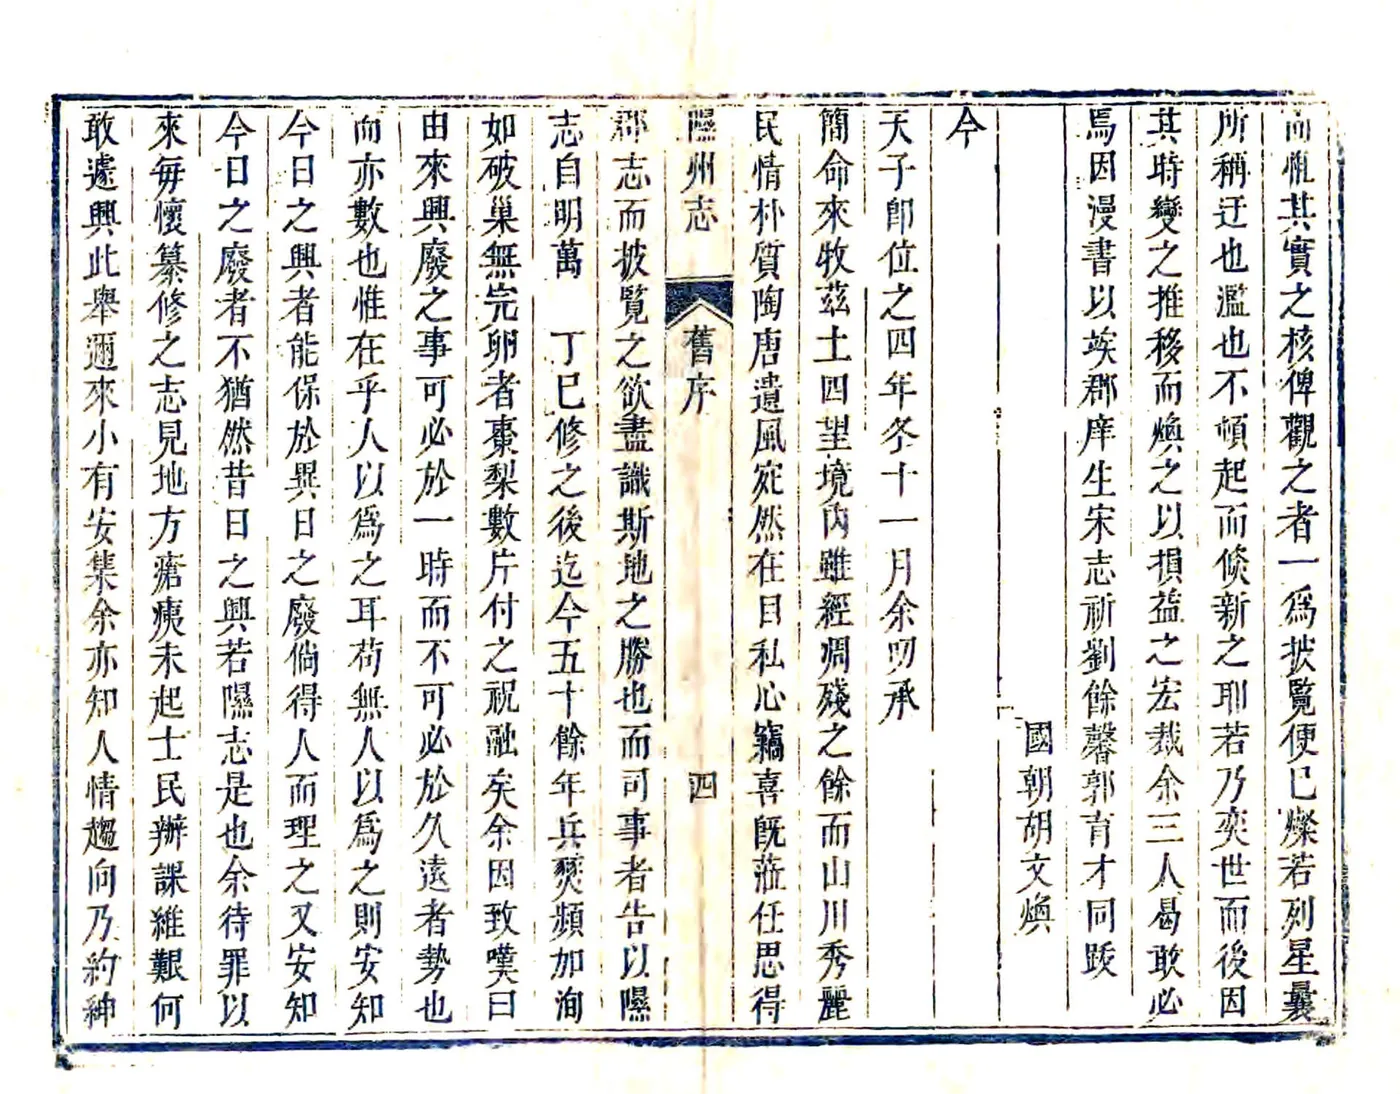 而恠其實之核俾觀之者一爲披覧便已燦若列星曩
所稱迂也濫也不頓起而倐新之耶若乃奕世而後因
其時變之推移而煥之以損益之宏裁余三人曷敢必
焉因漫書以竢郡庠生宋志祈劉餘馨郭育才同跋
國朝胡文煥
今
天子卽位之四年冬十一月余叨承
簡命來牧茲土四望境內雖經凋殘之餘而山川秀麗
民情朴質陶唐遺風宛然在目私心竊喜旣蒞任思得
隰州志
舊序
四
郡志而披覧之欲盡識斯地之勝也而司事者告以隰
志自明萬 丁巳修之後迄今五十餘年兵燹頻加洵
如破巢無完卵者棗梨數片付之祝融矣余因致嘆曰
由來興廢之事可必於一時而不可必於久遠者勢也
而亦數也惟在乎人以爲之耳苟無人以爲之則安知
今日之興者能保於異日之廢倘得人而理之又安知
今日之廢者不猶然昔日之興若隰志是也余待罪以
來每懷纂修之志見地方瘡痍未起士民辦課維艱何
敢遽興此舉邇來小有安集余亦知人情趨向乃約紳